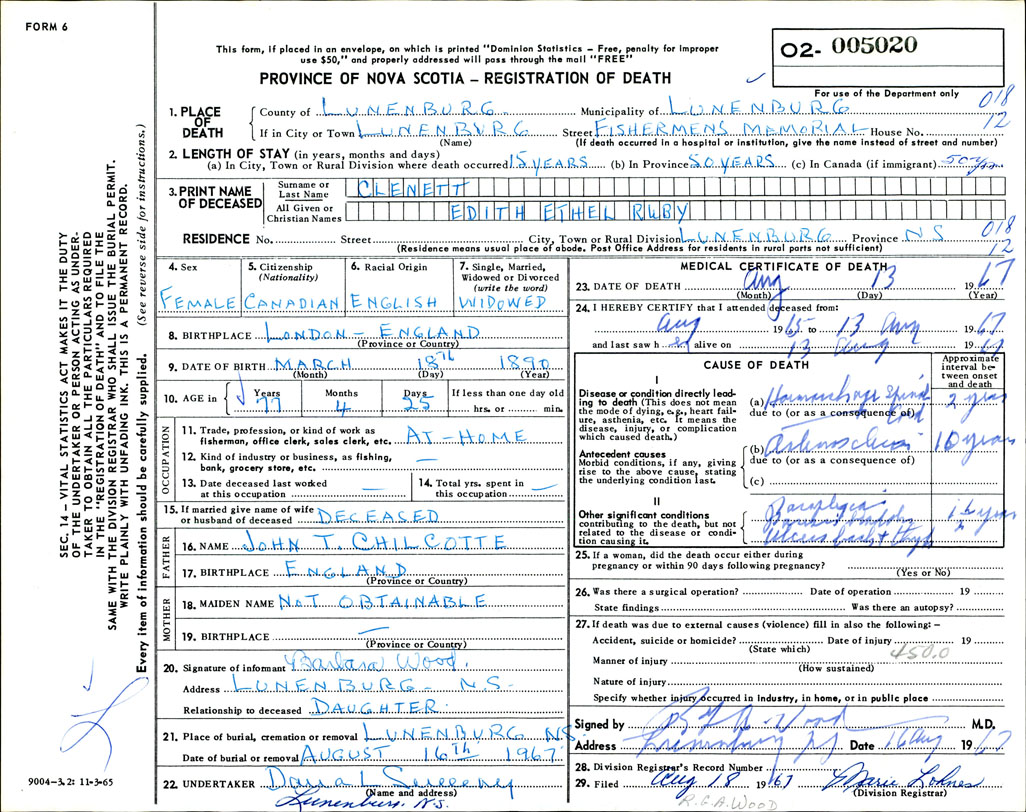 FORM 6
This form, if placed in an envelope, on which is printed "Dominion Statistics – Free, penalty for improper
use $50," and properly addressed will pass through the mail "FREE"
PROVINCE OF NOVA SCOTIA – REGISTRATION OF DEATH
02- 005020
For use of the Department only
018
12
1. PLACE OF DEATH
County of LUNENBURG Municipality of LUNENBURG
If in City or Town LUNENBURG Street FISHERMENS MEMORIAL House No.
(Name) (If death occurred in a hospital or institution, give the name instead of street and number)
2. LENGTH OF STAY (in years, months and days)
(a) In City, Town or Rural Division where death occurred 15 YEARS (b) In Province 50 YEARS (c) In Canada (if immigrant) 50 yrs
3. PRINT NAME OF DECEASED
Surname or Last Name CLENETT
All Given or Christian Names EDITH ETHEL RUBY
RESIDENCE No. Street City, Town or Rural Division LUNENBURG Province NS
(Residence means usual place of abode. Post Office Address for residents in rural parts not sufficient)
018
12
4. Sex
FEMALE
5. Citizenship
(Nationality)
CANADIAN
6. Racial Origin
ENGLISH
7. Single, Married,
Widowed or Divorced
(write the word)
WIDOWED
8. BIRTHPLACE LONDON – ENGLAND
(Province or Country)
9. DATE OF BIRTH MARCH 18th 1890
(Month) (Day) (Year)
10. AGE in
Years Months Days If less than one day old
77 4 25 hrs. or min.
OCCUPATION
11. Trade, profession, or kind of work as
fisherman, office clerk, sales clerk, etc. AT-HOME
12. Kind of industry or business, as fishing,
bank, grocery store, etc. —
13. Date deceased last worked
at this occupation —
14. Total yrs. spent in
this occupation —
15. If married give name of wife
or husband of deceased DECEASED
FATHER
16. NAME JOHN T. CHILCOTTE
17. BIRTHPLACE ENGLAND
(Province or Country)
MOTHER
18. MAIDEN NAME NOT OBTAINABLE
19. BIRTHPLACE —
(Province or Country)
20. Signature of informant Barbara Wood.
Address LUNENBURG – N.S.
Relationship to deceased DAUGHTER
21. Place of burial, cremation or removal LUNENBURG NS.
Date of burial or removal AUGUST 16th 1967
22. UNDERTAKER Dana L Sweeny
(Name and address)
Lunenburg. N.S.
MEDICAL CERTIFICATE OF DEATH
23. DATE OF DEATH Aug 13 1967
(Month) (Day) (Year)
24. I HEREBY CERTIFY that I attended deceased from:
Aug 1965 to 13 Aug 1967
and last saw h er alive on 13 Aug 1967
CAUSE OF DEATH
Approximate
interval be-
tween onset
and death
I
Disease or condition directly lead-
ing to death (This does not mean
the mode of dying, e.g., heart fail-
ure, asthenia, etc. It means the
disease, injury, or complication
which caused death.)
(a) Hemorrhage Spinal Cord 2 years
due to (or as a consequence of)
Antecedent causes
Morbid conditions, if any, giving
rise to the above cause, stating
the underlying condition last.
(b) 10 years
due to (or as a consequence of)
(c)
II
Other significant conditions
contributing to the death, but not
related to the disease or condi-
tion causing it.
Paraplegia
25. If a woman, did the death occur either during
pregnancy or within 90 days following pregnancy?
(Yes or No)
26. Was there a surgical operation? Date of operation 19
State findings Was there an autopsy?
27. If death was due to external causes (violence) fill in also the following: –
Accident, suicide or homicide? Date of injury 19
(State which)
450.0
Manner of injury
(How sustained)
Nature of injury
Specify whether injury occurred in Industry, in home, or in public place
Signed by R G A Wood M.D.
Address Lunenburg NS Date 16 Aug 1967
28. Division Registrar's Record Number
29. Filed Aug 18 1967 Marie Lohnes
(Division Registrar)
R.G.A. WOOD
SEC. 14 – VITAL STATISTICS ACT MAKES IT THE DUTY
OF THE UNDERTAKER OR PERSON ACTING AS UNDER-
TAKER TO OBTAIN ALL THE PARTICULARS REQUIRED
IN THE "REGISTRATION OF DEATH" AND TO FILE THE
SAME WITH THE DIVISION REGISTRAR WHO SHALL ISSUE THE BURIAL PERMIT.
WRITE PLAINLY WITH UNFADING INK. THIS IS A PERMANENT RECORD.
Every item of information should be carefully supplied. (See reverse side for instructions.)
9004-3.2: 11-3-65